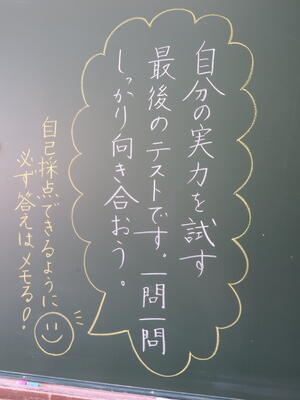 自分の実力を試す
最後のテストです。一問一問
しっかり向き合おう。
自己採点できるように
必ず答えはメモる!